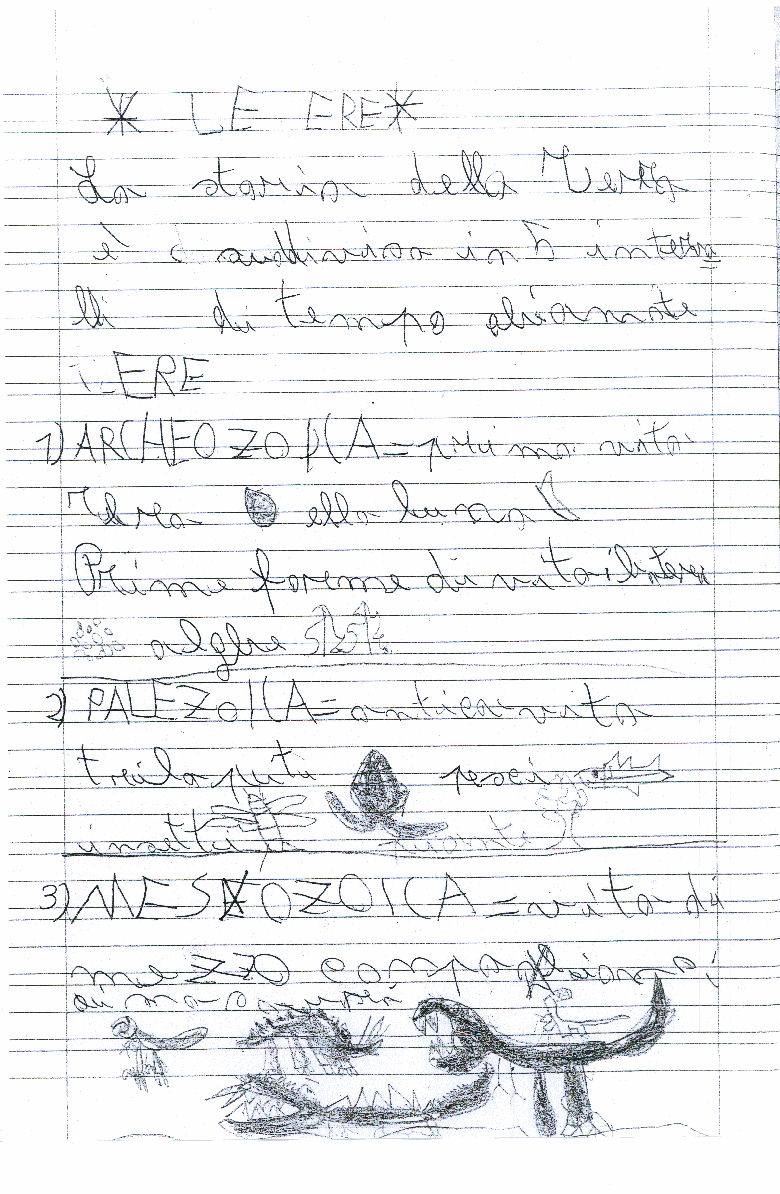 * LE ERE *
La storia della Terra
è suddivisa in 5 interva
lli di tempo chiamate
ERE
1) ARCHEOZOICA = prima vita
Terra e la luna
Prime forme di vita
alghe
2) PALEZOICA = antica vita
trilopiti pesci
insetti piante
3) MESOZOICA = vita di
mezzo compaiono i
dinosauri